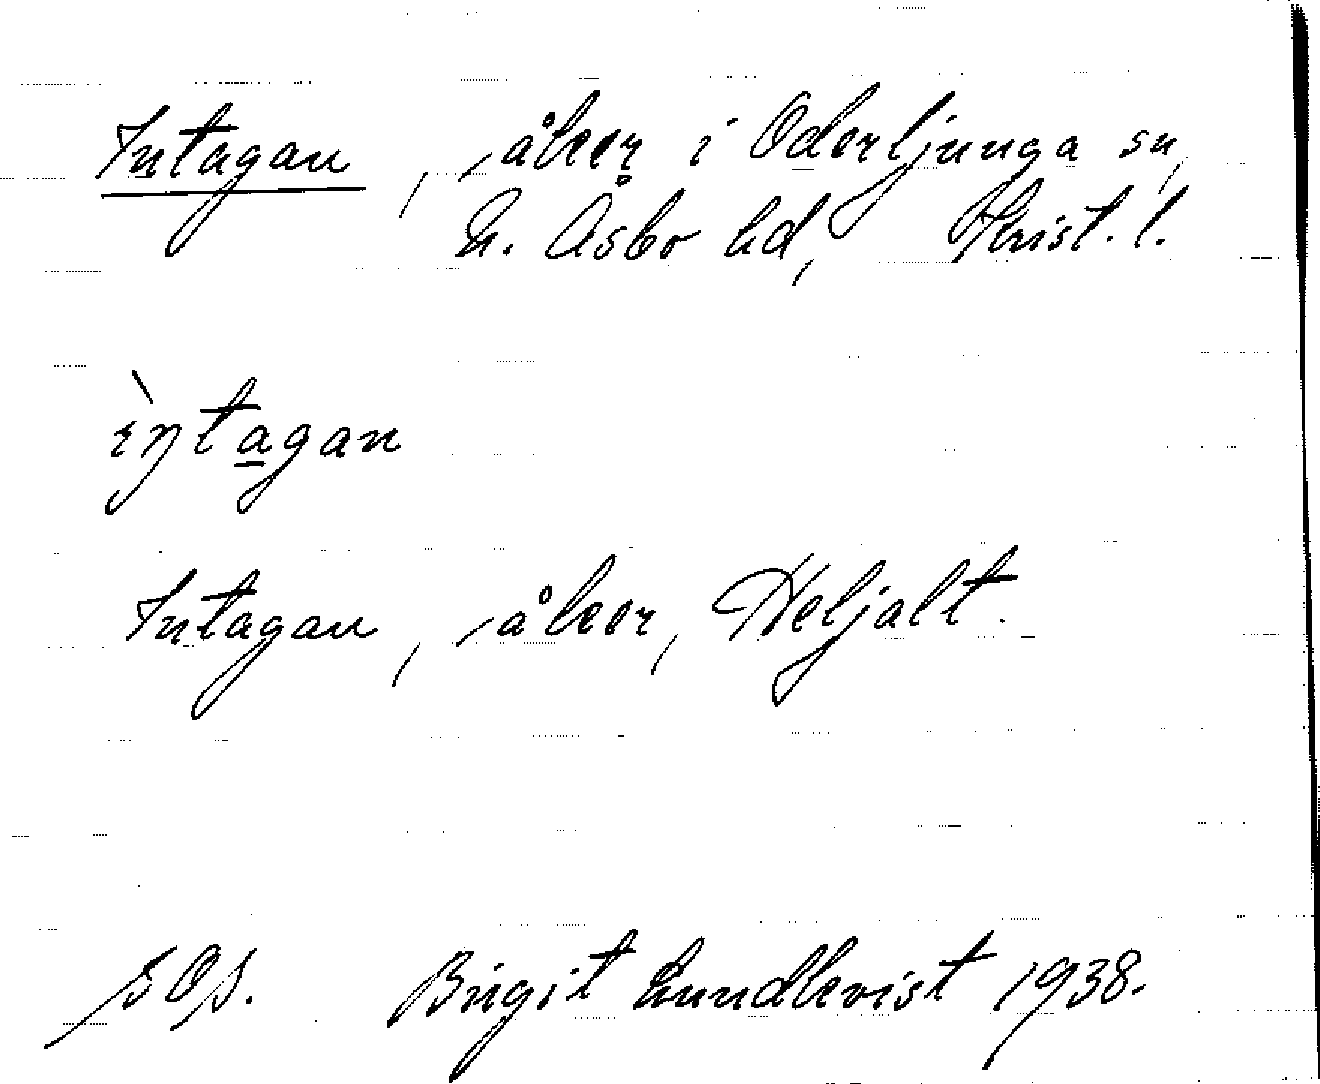 Intagan, åker i Oderljunga sn,
N. Åsbo hd, Krist. l.
ìntagan
Intagan, åker, Heljalt.
Birgit Lundkvist 1938.